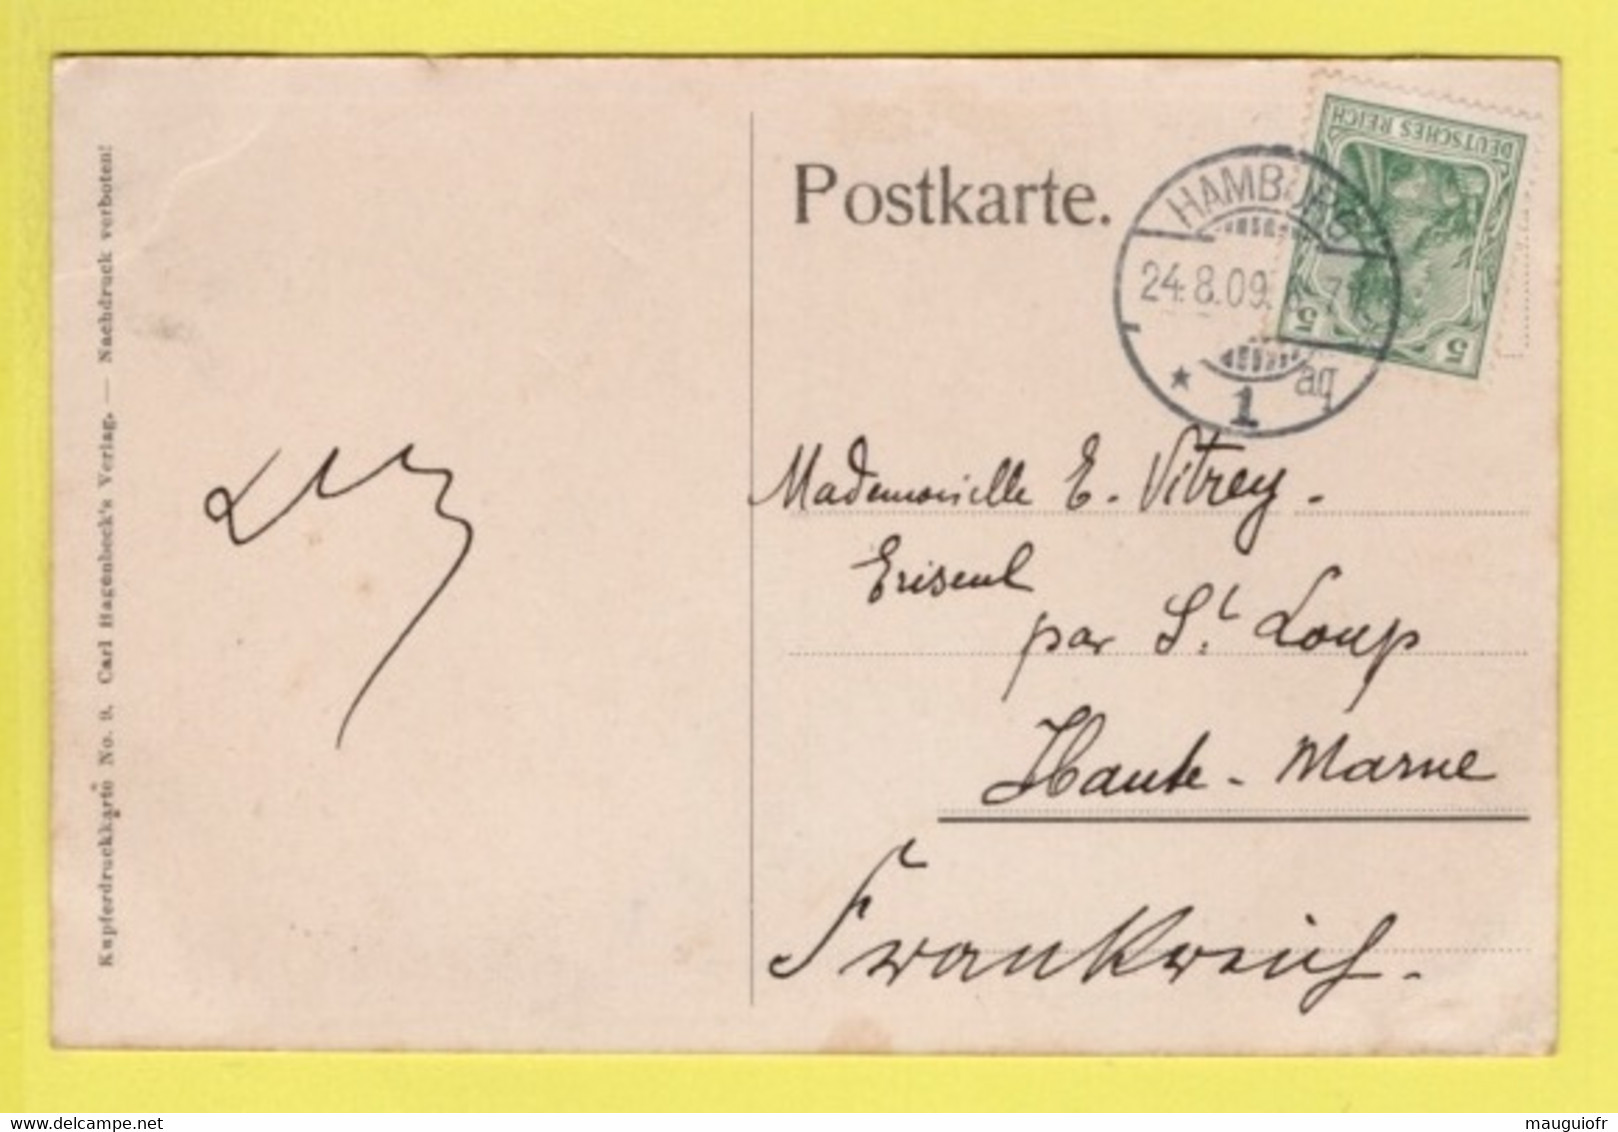 Kupferdruckkarte No. 9. Carl Hagenbeck's Verlag. — Nachdruck verboten!
Postkarte.
DEUTSCHES REICH
5 5
HAMBURG
24.8.09. 7
* 1 aq
Mademoiselle E. Vitrey.
Eriseul
par St. Loup
Haute-Marne
Frankreich.
maugiofr